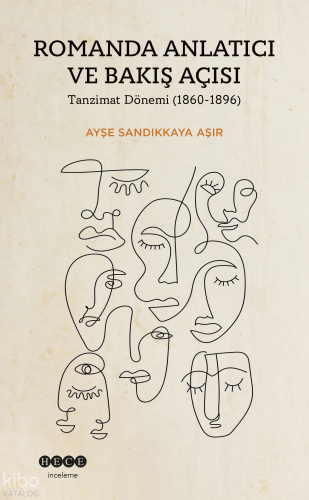 ROMANDA ANLATICI
VE BAKIŞ AÇISI
Tanzimat Dönemi (1860-1896)
AYŞE SANDIKKAYA AŞIR
HECE
inceleme
kibo
KATALOG